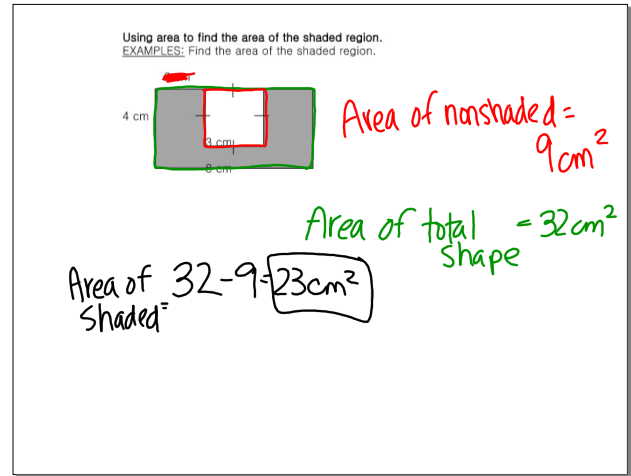 Using area to find the area of the shaded region.
EXAMPLES: Find the area of the shaded region.
4 cm
3 cm
8 cm
Area of nonshaded =
9cm²
Area of total = 32cm²
shape
Area of 32-9=23cm²
shaded=